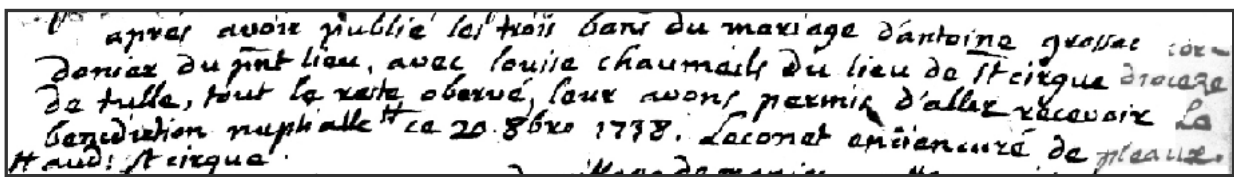 après avoir publié les trois bans du mariage d'antoine grossac cor-
donier du pnt lieu, avec louise chaumeils du lieu de St cirque dioceze
de tulle, tout le reste obervé, leur avons permis d'aller recevoir La
benediction nuptialle # ce 20. 8bre 1738. Leconet anciencuré de pleaux.
# aud: St cirque.